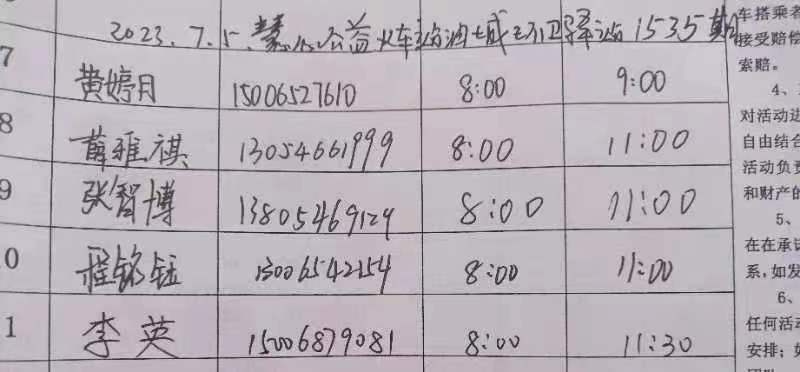 2023.7.5.慧心公益火车站油城卫驿站1535期
7 黄婷月 15006527610 8:00 9:00
8 薛雅祺 13054661999 8:00 11:00
9 张智博 13805469129 8:00 11:00
0 程铭钰 13006542154 8:00 11:00
1 李英 15006879081 8:00 11:30
车搭乘者
接受赔偿
索赔。
4、
对活动进
自由结合
活动负责
和财产的
5、
在在承诺
系,如发
6、
任何活动
安排;如